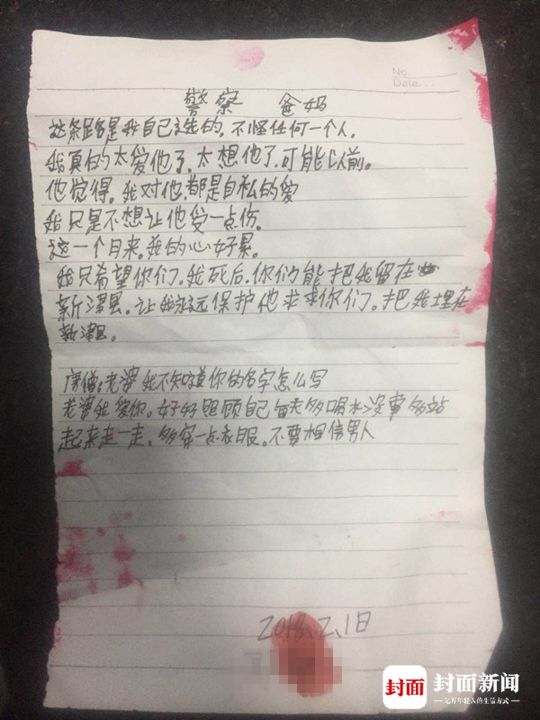 No
Date
警察 爸妈
这条路是我自己选的,不怪任何一个人。
我真的太爱他了,太想他了,可能以前。
他觉得。我对他,都是自私的爱
我只是不想让他受一点伤。
这一个月来,我的心好累。
我只希望你们,我死后,你们能把我留在
新津县。让我永远保护他求求你们。把我埋在
新津县。
唐僧:老婆我不知道你的名字怎么写
老婆我爱你。好好照顾自己每天多喝水没事多站
起来走一走,多穿一点衣服。不要相信男人
2018.2.1日
封面 封面新闻
亿万年轻人的生活方式